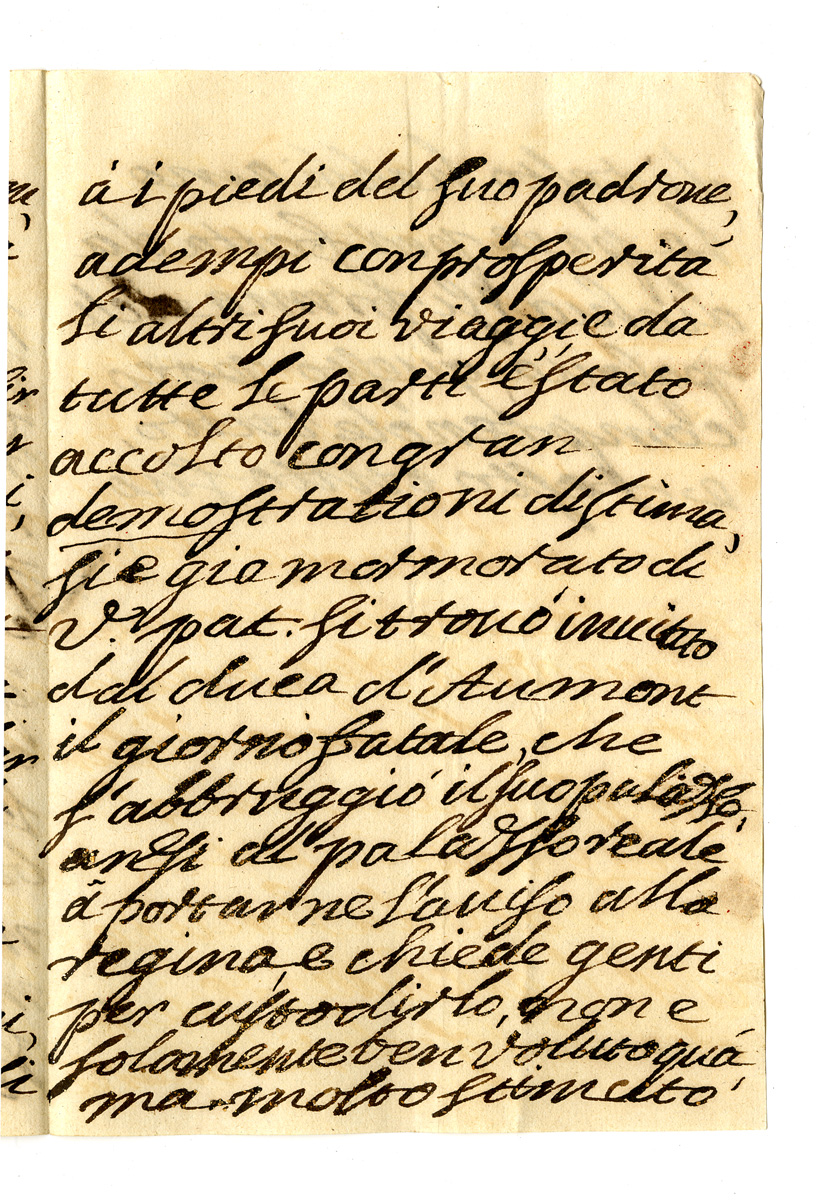 á i piedi del suo padrone,
adempi con prosperità
li altri suoi viaggi, e da
tutte le parti è stato
accolto con gran
demostrationi di stima,
si e gie mormorato di
V.ᵃ pat. si trovó invitato
dal duca d'Aumont
il giorno fatale, che
s'abbruggió il suo palazzo,
anzi al palazzo reale
à portarne l'aviso alla
regina, e chiede genti
per custodirlo, non e
solamente ben voluto quá
ma molto stimato